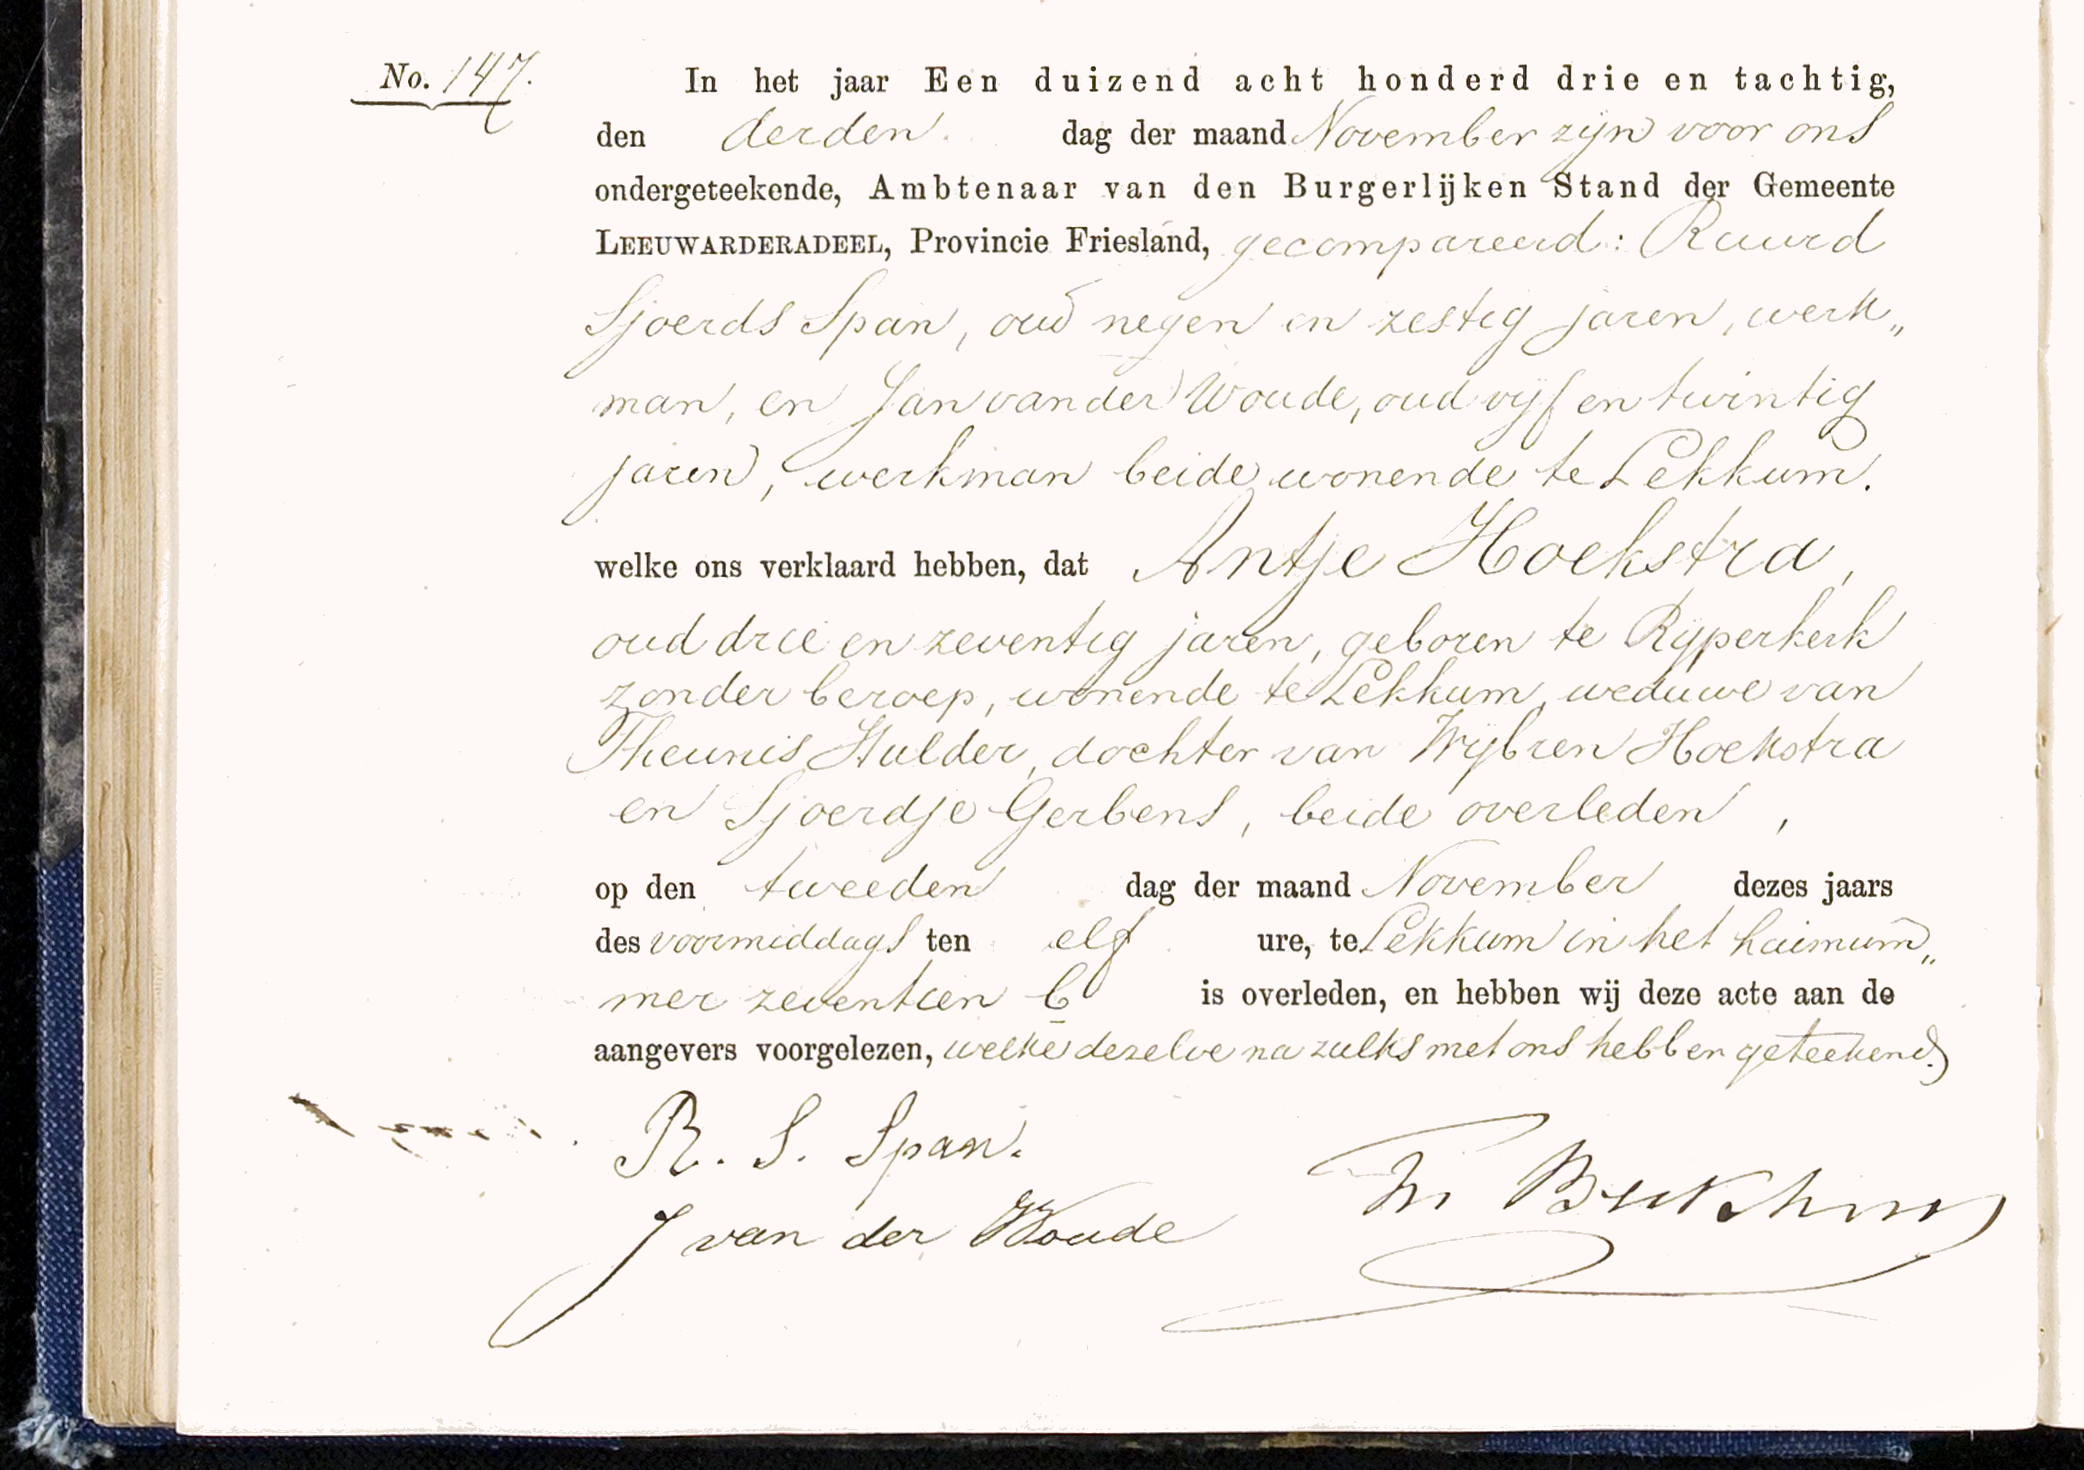 No. 147.
In het jaar Een duizend acht honderd drie en tachtig,
den derden dag der maand November zijn voor ons
ondergeteekende, Ambtenaar van den Burgerlijken Stand der Gemeente
LEEUWARDERADEEL, Provincie Friesland, gecompareerd: Ruurd
Sjoerds Span, oud negen en zestig jaren, werk„
man, en Jan van der Woude, oud vijf en twintig
jaren, werkman beide wonende te Lekkum.
welke ons verklaard hebben, dat Antje Hoekstra,
oud drie en zeventig jaren, geboren te Rijperkerk
zonder beroep, wonende te Lekkum, weduwe van
Theunis Hulder, dochter van Wijbren Hoekstra
en Sjoerdje Gerbens, beide overleden,
op den tweeden dag der maand November dezes jaars
des voormiddags ten elf ure, te Lekkum in het huisnum„
mer zeventien b is overleden, en hebben wij deze acte aan de
aangevers voorgelezen, welke dezelve na zulks met ons hebben geteekend.
R. S. Span.
J van der Woude